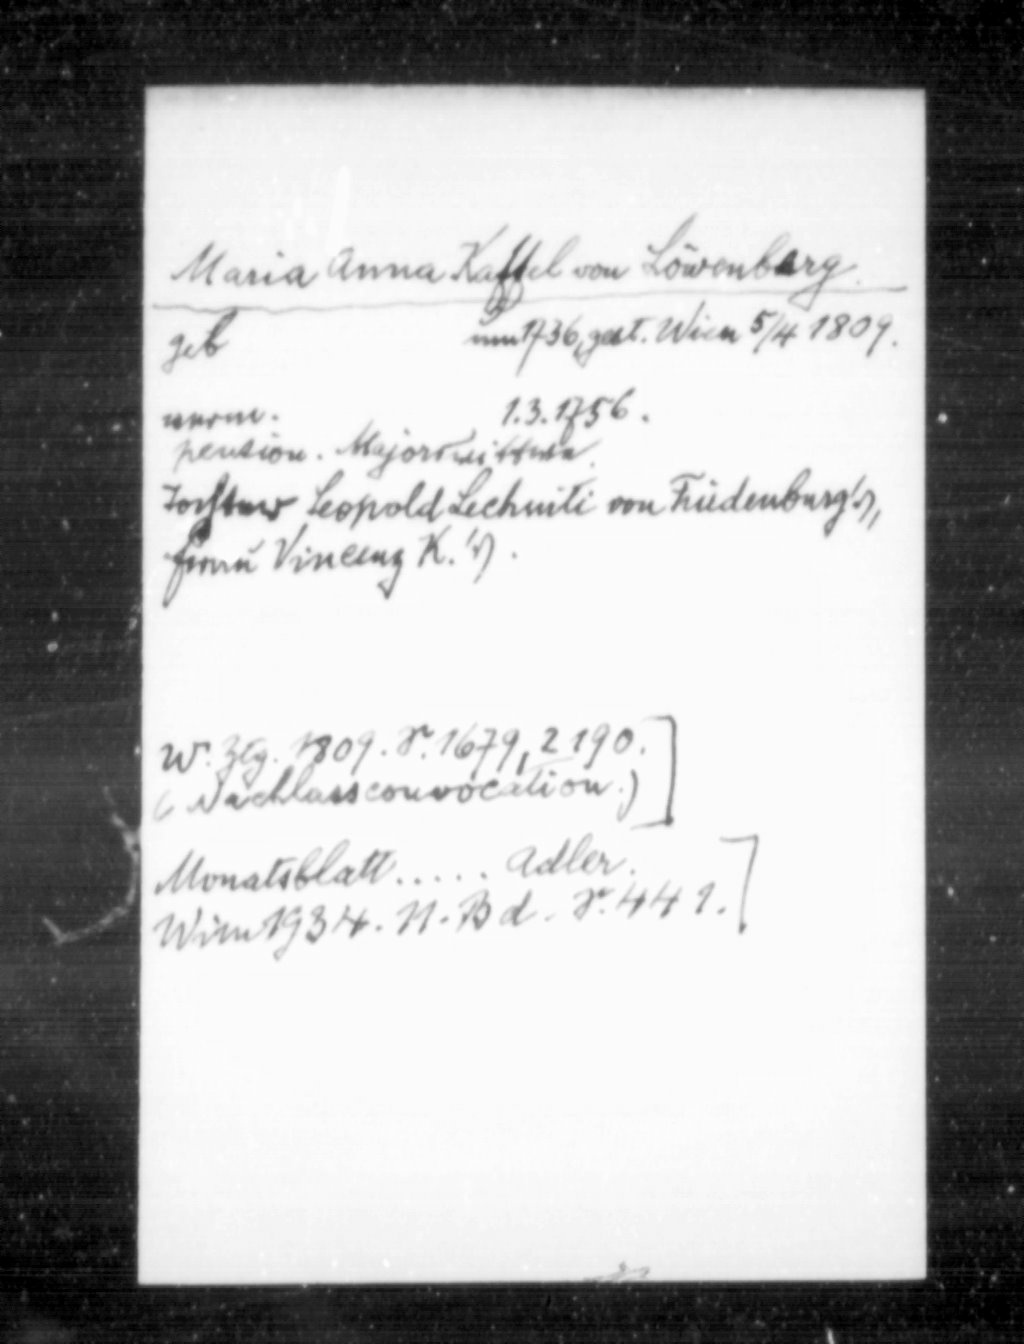 Maria Anna Kaffel von Löwenberg.
geb um 1736, gest. Wien 5/4 1809.
verm. 1.3.1756.
pension. Majorswittwe.
Tochter Leopold Lechniti von Friedenburg!),
Frau Vincenz K.!).
W. Ztg. 1809. S. 1679, 2190.
(Nachlassconvocation.)
Monatsblatt..... Adler.
Wien 1934. 11. Bd. S. 441.